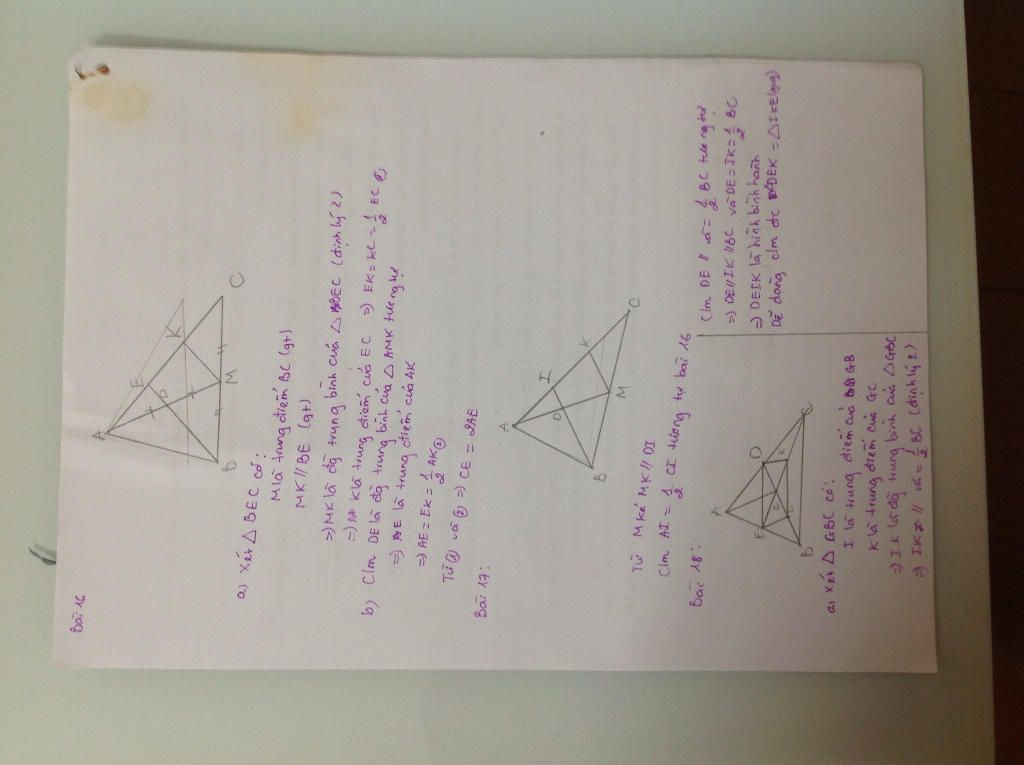 Bài 16
A
E
D
K
B
M
C
a) Xét △ BEC có:
M là trung điểm BC (gt)
MK // BE (gt)
=> MK là đg trung bình của △ BEC (định lý 2)
=> K là trung điểm của EC => EK = KC = 1/2 EC ①
b) Clm DE là đg trung bình của △ AMK tương tự
=> E là trung điểm của AK
=> AE = EK = 1/2 AK ②
Từ ① và ② => CE = 2AE
Bài 17:
A
I
D
K
B
M
C
Từ M kẻ MK // DI
Clm AI = 1/2 CI tương tự bài 16
Bài 18:
A
E
D
G
I
K
B
C
a) Xét △ GBC có:
I là trung điểm của GB
K là trung điểm của GC
=> IK là đg trung bình của △ GBC
=> IK // và = 1/2 BC (định lý 2)
Clm DE // và = 1/2 BC tương tự
=> DE // IK // BC và DE = IK = 1/2 BC
=> DEIK là hình bình hành
Dễ dàng clm đc DEK = △ IKE (gcg)